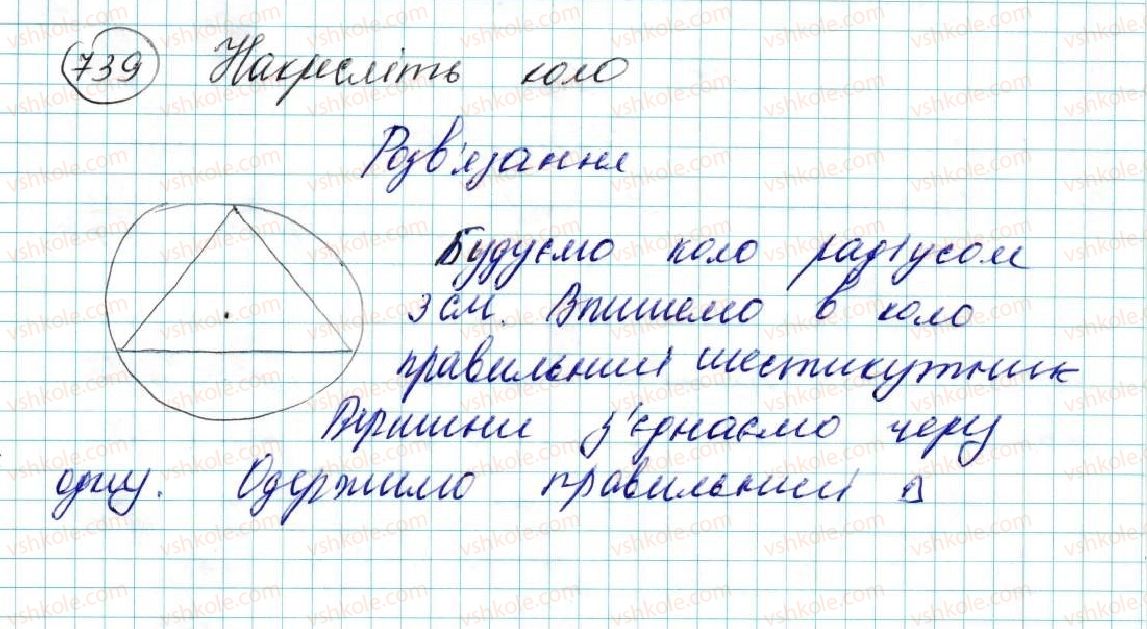 739 Накресліть коло
Розв'язання
Будуємо коло радіусом
3 см. Впишемо в коло
правильний шестикутник
Вершини з'єднаємо через
одну. Одержимо правильний Δ